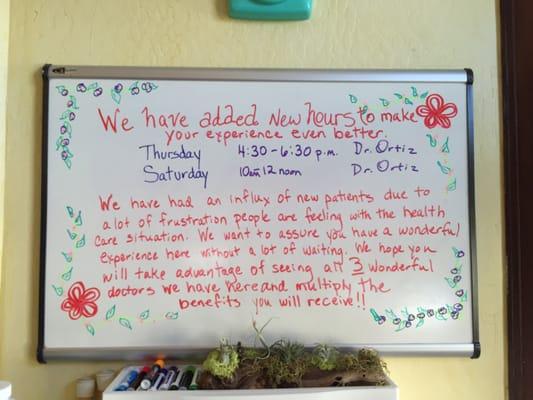 We have added New hours to make
your experience even better.
Thursday 4:30-6:30 p.m. Dr. Ortiz
Saturday 10am 12 noon Dr. Ortiz
We have had an influx of new patients due to
a lot of frustration people are feeling with the health
care situation. We want to assure you have a wonderful
experience here without a lot of waiting. We hope you
will take advantage of seeing all 3 wonderful
doctors we have here and multiply the
benefits you will receive!!